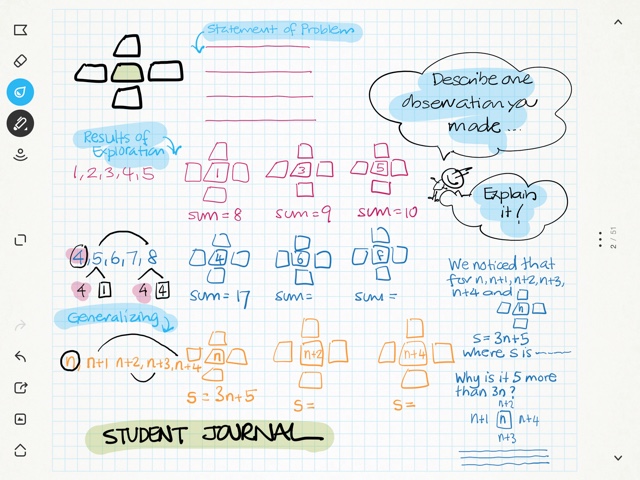 Statement of Problem
Describe one
observation you
made...
Explain
it!
Results of
Exploration
1,2,3,4,5
1
3
5
sum=8
sum=9
sum=10
4,5,6,7,8
4 1 4 4
4
6
8
sum=17
sum=
sum=
Generalizing
n, n+1 n+2, n+3, n+4
n
n+2
n+4
s=3n+5
s=
s=
We noticed that
for n, n+1, n+2, n+3,
n+4 and
n
s=3n+5
where s is
Why is it 5 more
than 3n?
n+2
n+1 n n+4
n+3
STUDENT JOURNAL
2 / 51